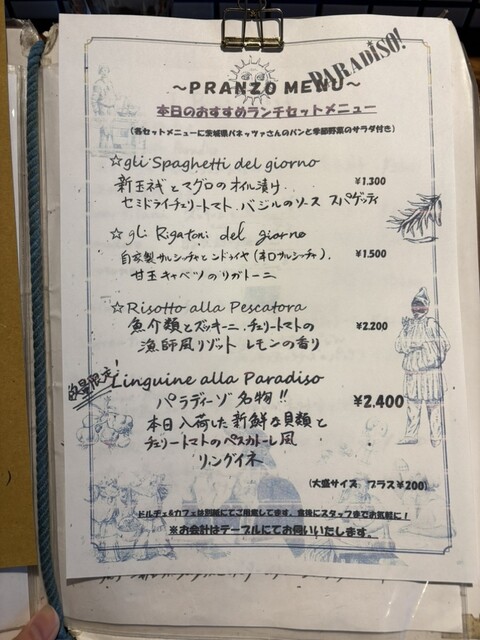 PARADISO!
~PRANZO MENU~
本日のおすすめランチセットメニュー
(各セットメニューに茨城県パネッツァさんのパンと季節野菜のサラダ付き)
☆gli Spaghetti del giorno
新玉ねぎとマグロのオイル漬け ¥1.300
セミドライチェリートマト バジルのソース スパゲッティ
☆gli Rigatoni del giorno
自家製サルシッチャとンドゥイヤ(辛口サルシッチャ) ¥1.500
甘玉キャベツのリガトーニ
☆Risotto alla Pescatora
魚介類とズッキーニ、チェリートマトの ¥2.200
漁師風リゾット レモンの香り
数量限定!
Linguine alla Paradiso
パラディーゾ名物!! ¥2.400
本日入荷した新鮮な貝類と
チェリートマトのペスカトーレ風
リングイネ
(大盛サイズ プラス¥200)
ドルチェ&カフェは別紙にてご用意してます。食後にスタッフまでお気軽に!
※お会計はテーブルにてお伺いいたします。